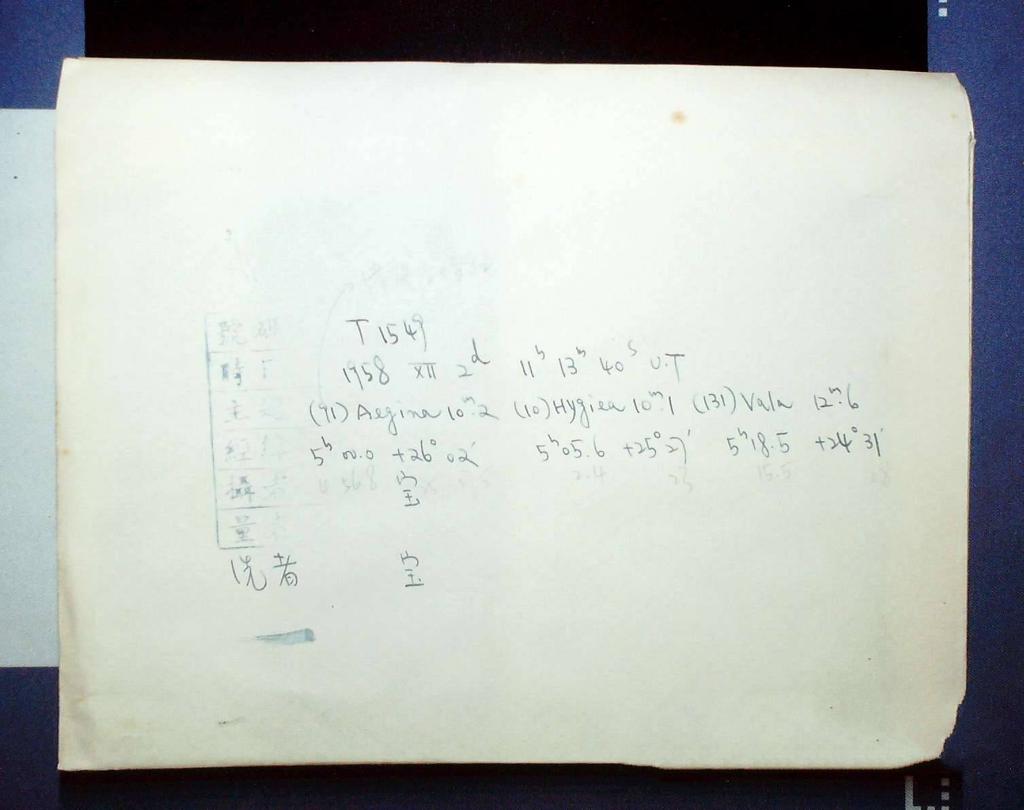 號碼 T 1549
時 1958 XII 2ᵈ 11ʰ 13ᵐ 40ˢ U.T
主 (91) Aegina 10ᵐ.2 (10) Hygiea 10ᵐ.1 (131) Vala 12ᵐ.6
經 5ʰ00.0 +26°02′ 5ʰ05.6 +25°27′ 5ʰ18.5 +24°31′
攝者 宝
2.4 23 15.5 28
量
洗者 宝